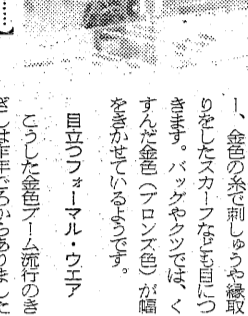 ー、金色の糸で刺しゅうや縁取
りをしたスカーフなども目につ
きます。バッグやクツでは、く
すんだ金色（ブロンズ色）が幅
をきかせているようです。
目立つフォーマル・ウエア
こうした金色ブーム流行のき
ざしは昨年ごろからありました